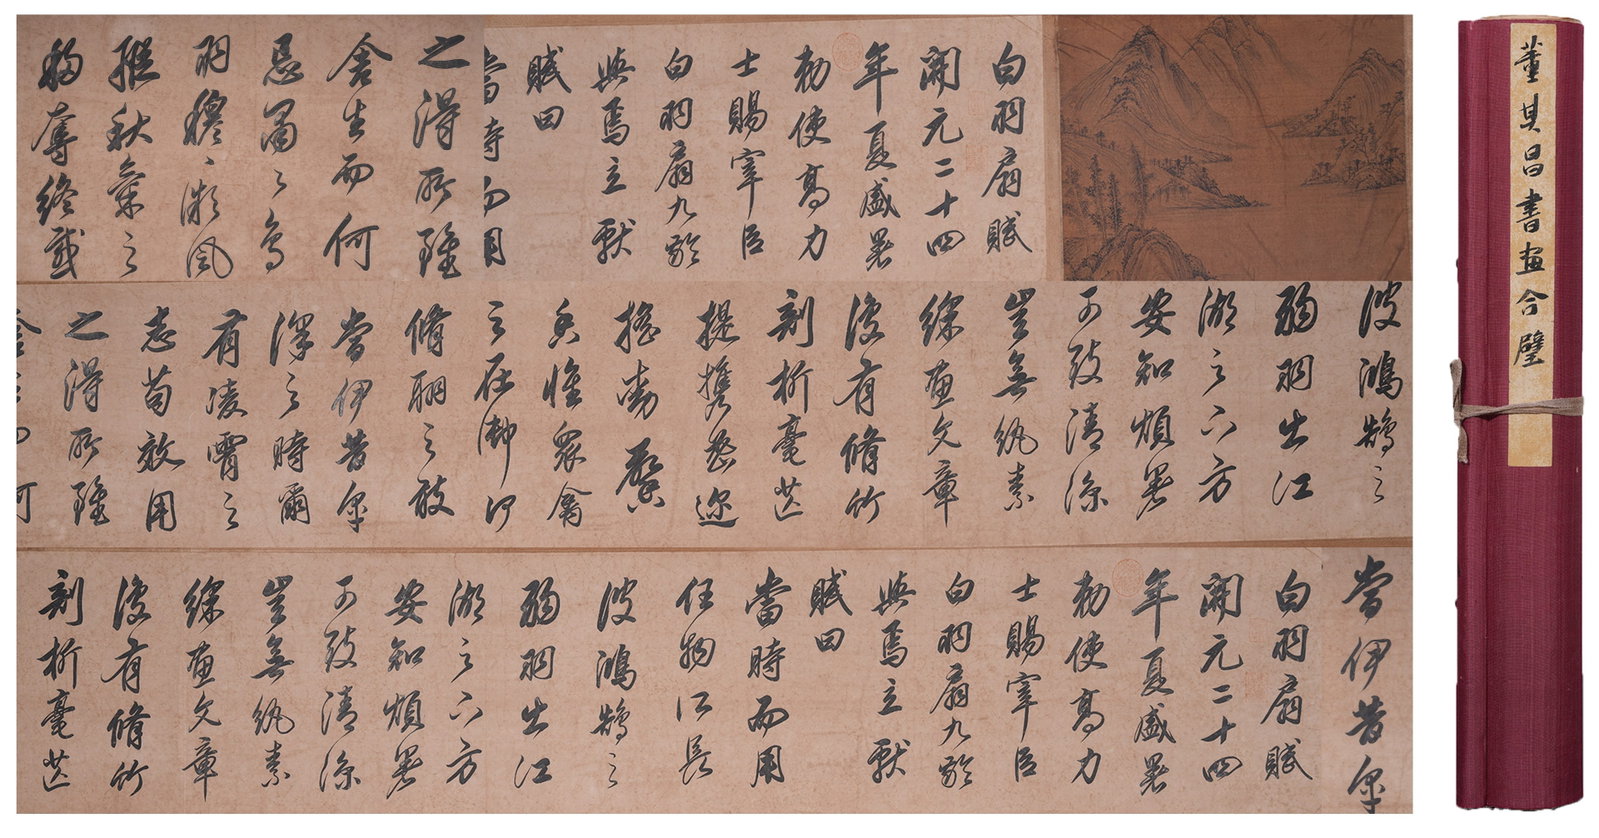 白羽扇賦
開元二十四
年夏盛暑
勅使高力
士賜宰臣
白羽扇九齡
與焉立獻
賦曰
當時而用
之得所雖
舍生而何
忌肅々鳥
羽穆々風
縱秋氣之
移奪終感
彼鴻鵠之
弱羽出江
湖之下方
安知煩暑
可致清涼
豈無紈素
綵畫文章
復有脩竹
剖析毫芒
提攜密邇
搖動馨
香惟眾禽
之在御何
脩翮之敢
當伊昔皋
澤之時爾
有凌霄之
志苟效用
之得所雖
當伊昔皋
白羽扇賦
開元二十四
年夏盛暑
勅使高力
士賜宰臣
白羽扇九齡
與焉立獻
賦曰
當時而用
任物所長
彼鴻鵠之
弱羽出江
湖之下方
安知煩暑
可致清涼
豈無紈素
綵畫文章
復有脩竹
剖析毫芒
董其昌書畫合璧